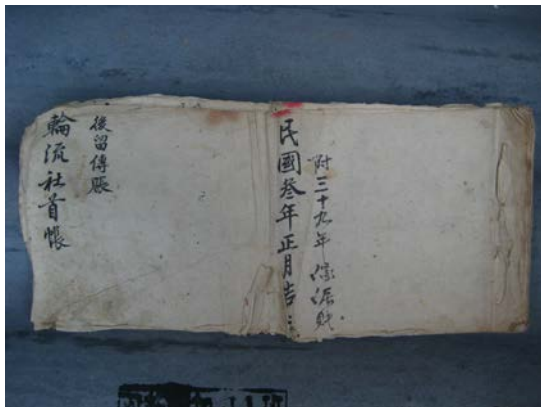 附三十九年
民國叁年正月吉立
後留傳賬
輪流社首帳